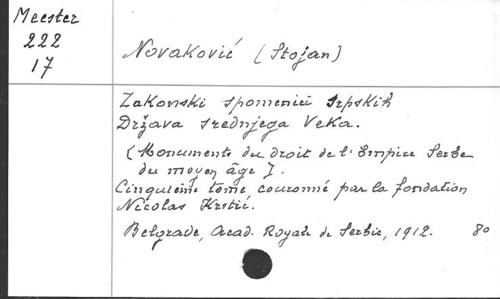 Meester
222
17
Novaković (Stojan)
Zakonski spomenici Srpskih
Država srednjega Veka.
(Monuments du droit de l'Empire Serbe
du moyen âge).
Cinquième tome couronné par la fondation
Nicolas Krstić.
Belgrade, Acad. Royale de Serbie, 1912. 80